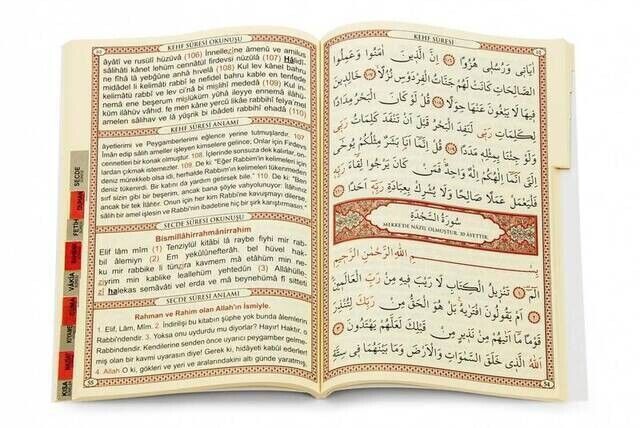 KEHF SÛRESİ OKUNUŞU
âyâtî ve rusulî hüzüvâ (106) İnnellezîne âmenû ve amilus
sâlihâti kânet lehüm cennâtül firdevsi nüzülâ (107) Hâlidî-
ne fîhâ lâ yebğûne anhâ hivelâ (108) Kul lev kânel bahru
midâdel li kelimâti rabbî le nefidel bahru kable en tenfede
kelimâtü rabbî ve lev ci'nâ bi mislihî mededâ (109) Kul in-
nemâ ene beşerum mislüküm yûhâ ileyye ennemâ ilâhü-
küm ilâhuv vâhid, fe men kâne yercû likâe rabbihî felya'mel
amelen sâlihav ve lâ yüşrik bi ibâdeti rabbihî ehadâ (110)
KEHF SÛRESİ ANLAMI
âyetlerimi ve Peygamberlerimi eğlence yerine tutmuşlardır. 107.
İman edip sâlih ameller işleyen kimselere gelince; Onlar için Firdevs
cennetleri bir konak olmuştur. 108. İçlerinde sonsuza dek kalırlar, on-
dan çıkmak istemezler. 109. De ki: "Eğer Rabbim'in kelimeleri için
deniz mürekkeb olsa idi, herhalde Rabbim'in kelimeleri tükenmeden
deniz tükenirdi. Bir katını da yardım getirsek bile." 110. De ki: "Ben
sırf sizin gibi bir beşerim, ancak bana şöyle vahyolunuyor: İlâhınız
ancak bir tek İlâhtır. Onun için her kim Rabbi'ne kavuşmayı dilerse,
sâlih bir amel işlesin ve Rabbi'nin ibadetine hiç bir şirk karıştırmasın."
SECDE SÛRESİ OKUNUŞU
Bismillâhirrahmânirrahîm
Elif lâm mîm (1) Tenzîlül kitâbi lâ raybe fîhi mir rab-
bil âlemîyn (2) Em yekûlûnefterâh, bel hüvel hak-
ku mir rabbike li tünzira kavmem mâ etâhüm min ne-
ziyrim min kablike leallehüm yehtedûn (3) Allâhülle-
zî halekas semâvâti vel erda ve mâ beynehümâ fî sitteti
SECDE SÛRESİ ANLAMI
Rahman ve Rahim olan Allah'ın İsmiyle.
1. Elif, Lâm, Mîm. 2. İndirilişi bu kitabın şüphe yok bunda âlemlerin
Rabbi'ndendir. 3. Yoksa onu uydurdu mu diyorlar? Hayır! Haktır, o
Rabbi'ndendir. Kendilerine senden önce uyarıcı peygamber gelme-
miş olan bir kavmi uyarasın diye! Gerek ki, hidâyeti kabûl ederler!
4. Allah O ki, gökleri ve yeri ve aralarındakini altı günde yaratmış,
SECDE
DUHAN
FETİH
VÂKIA
KEHF SÛRESİ
اٰيَاتٖي وَرُسُلٖي هُزُوًا ﴿١٠٦﴾ اِنَّ الَّذٖينَ اٰمَنُوا وَعَمِلُوا
الصَّالِحَاتِ كَانَتْ لَهُمْ جَنَّاتُ الْفِرْدَوْسِ نُزُلًا ﴿١٠٧﴾ خَالِدٖينَ
فٖيهَا لَا يَبْغُونَ عَنْهَا حِوَلًا ﴿١٠٨﴾ قُلْ لَوْ كَانَ الْبَحْرُ مِدَادًا
لِكَلِمَاتِ رَبّٖي لَنَفِدَ الْبَحْرُ قَبْلَ اَنْ تَنْفَدَ كَلِمَاتُ رَبّٖي
وَلَوْ جِئْنَا بِمِثْلِهٖ مَدَدًا ﴿١٠٩﴾ قُلْ اِنَّمَا اَنَا بَشَرٌ مِثْلُكُمْ يُوحٰى
اِلَيَّ اَنَّمَا اِلٰهُكُمْ اِلٰهٌ وَاحِدٌ فَمَنْ كَانَ يَرْجُوا لِقَاءَ
رَبِّهٖ فَلْيَعْمَلْ عَمَلًا صَالِحًا وَلَا يُشْرِكْ بِعِبَادَةِ رَبِّهٖ اَحَدًا ﴿١١٠﴾
سُورَةُ السَّجْدَةِ
MEKKE'DE NÂZİL OLMUŞTUR. 30 ÂYETTİR.
بِسْمِ اللّٰهِ الرَّحْمٰنِ الرَّحٖيمِ
الٓمٓ ﴿١﴾ تَنْزٖيلُ الْكِتَابِ لَا رَيْبَ فٖيهِ مِنْ رَبِّ الْعَالَمٖينَ
﴿٢﴾ اَمْ يَقُولُونَ افْتَرٰيهُ بَلْ هُوَ الْحَقُّ مِنْ رَبِّكَ لِتُنْذِرَ
قَوْمًا مَا اَتٰيهُمْ مِنْ نَذٖيرٍ مِنْ قَبْلِكَ لَعَلَّهُمْ يَهْتَدُونَ ﴿٣﴾
اَللّٰهُ الَّذٖي خَلَقَ السَّمٰوَاتِ وَالْاَرْضَ وَمَا بَيْنَهُمَا فٖي سِتَّةِ